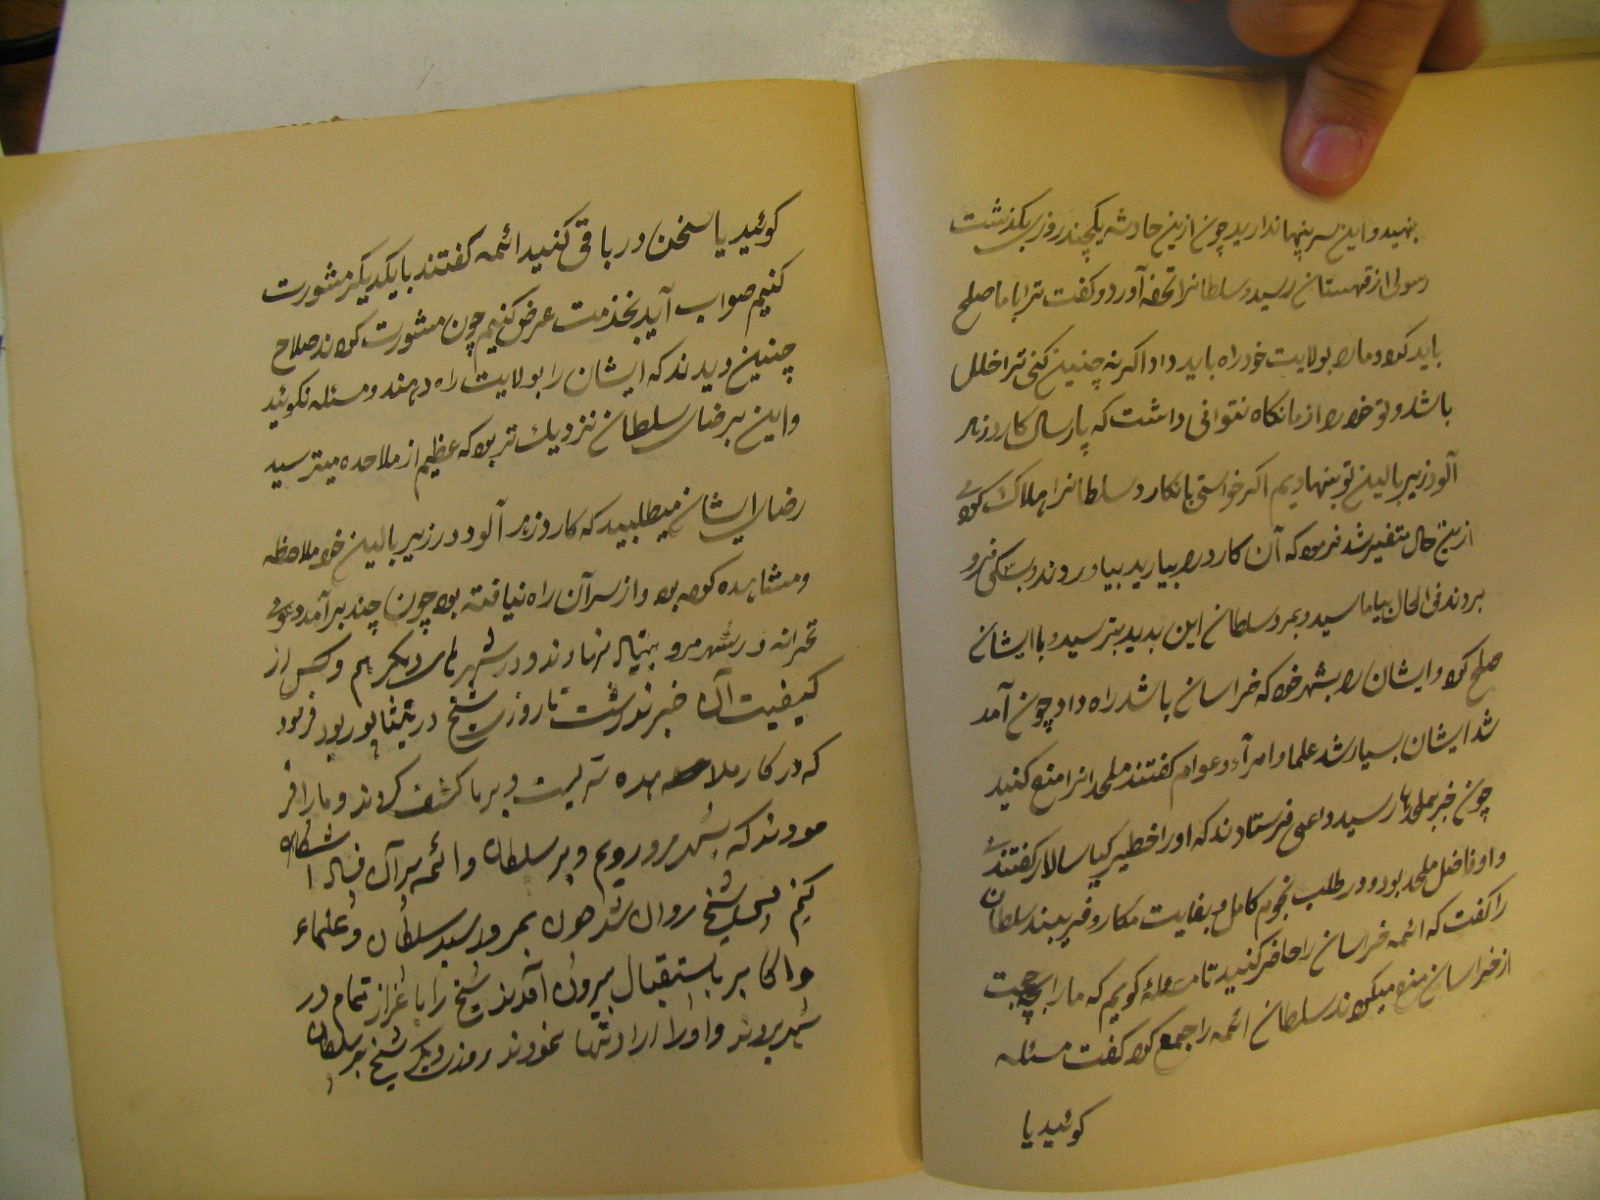 بنهید و این سر پنهاندارید چون ازین حادثه یکچند روزی بگذشت
رسولی از قهستان رسید و سلطانرا تحفه آورد و گفت ترا با ما صلح
باید کرد و مارا بولایت خود راه باید داد اگر نه چنین کنی ترا خلل
باشد و تو خود را از ما نگاه نتوانی داشت که پارسال کارد زهر
آلود زیر بالین تو بنهادیم اگر خواستی بانکارد سلطانرا هلاک کردی
ازین حال متغیر شد فرمود که آن کارد را بیارید بیاوردند و بسگی فرو
بردند فی الحال بیاماسید و بمرد سلطان این بدید بترسید و با ایشان
صلح کرد و ایشان را بشهر خود که خراسان باشد راه داد چون آمد
شد ایشان بسیار شد علما و امرآء و عوام گفتند ملحدانرا منع کنید
چون خبر بملحدها رسید داعی فرستادند که او را خطیر کیا سالار گفتندی
و او فاضل ملحد بود و در طلب نجوم کامل و بغایت مکار و فریبند سلطان
را گفت که ائمه خراسان را حاضر کنید تا مسئله گویم که ما را بچه حجت
از خراسان منع میکردند سلطان ائمه را جمع کرد گفت مسئله
گوئید یا
گوئید یا سخن در باقی کنید ائمه گفتند با یکدیگر مشورت
کنیم صواب آید بخدمت عرض کنیم چون مشورت کردند صلاح
چنین دیدند که ایشان را بولایت راه دهند و مسئله نگوئید
و این برضای سلطان نزدیك تر بود که عظیم از ملاحده میترسید
رضای ایشان میطلبید که کارد زهر آلود در زیر بالین خود ملاحظه
و مشاهده کرده بود و از سر آن راه نیافته بود چون چند برآمد دعوی
در شهر مرو بنهادند و در شهرهای دیگر هم و کس از
کیفیت آن خبر نداشت تا روزی شیخ در نیشاپور بود فرمود
که در کار ملاحده سریست و بر ما کشف کردند و ما را فر
مودند که بشهر مرو رویم و بر سلطان و ائمه بر آن خیال آشکاره
کنم پس شیخ روان شد چون بمرو رسید سلطان و علماء
و اکابر باستقبال بیرون آمدند شیخ را با عزاز تمام در
شهر بردند و او را ارادتها نمودند روزی دیگر شیخ بر سلطان